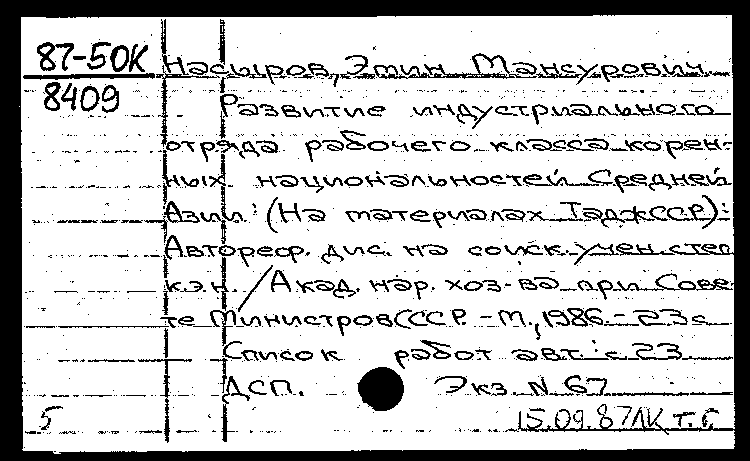 87-5ОК Насыров, Эмин Мансурович
8409 Развитие индустриального
отряда рабочего класса корен-
ных национальностей Средней
Азии: (На материалах ТаджССР):
Автореф. дис. на соиск. учен. степ
к.э.н. / Акад. нар. хоз-ва при Сове
те Министров СССР. - М., 1986. - 23 с
Список работ авт.: с. 23
ДСП. Экз. N 67
5 15.09.87 ЛК т. г.